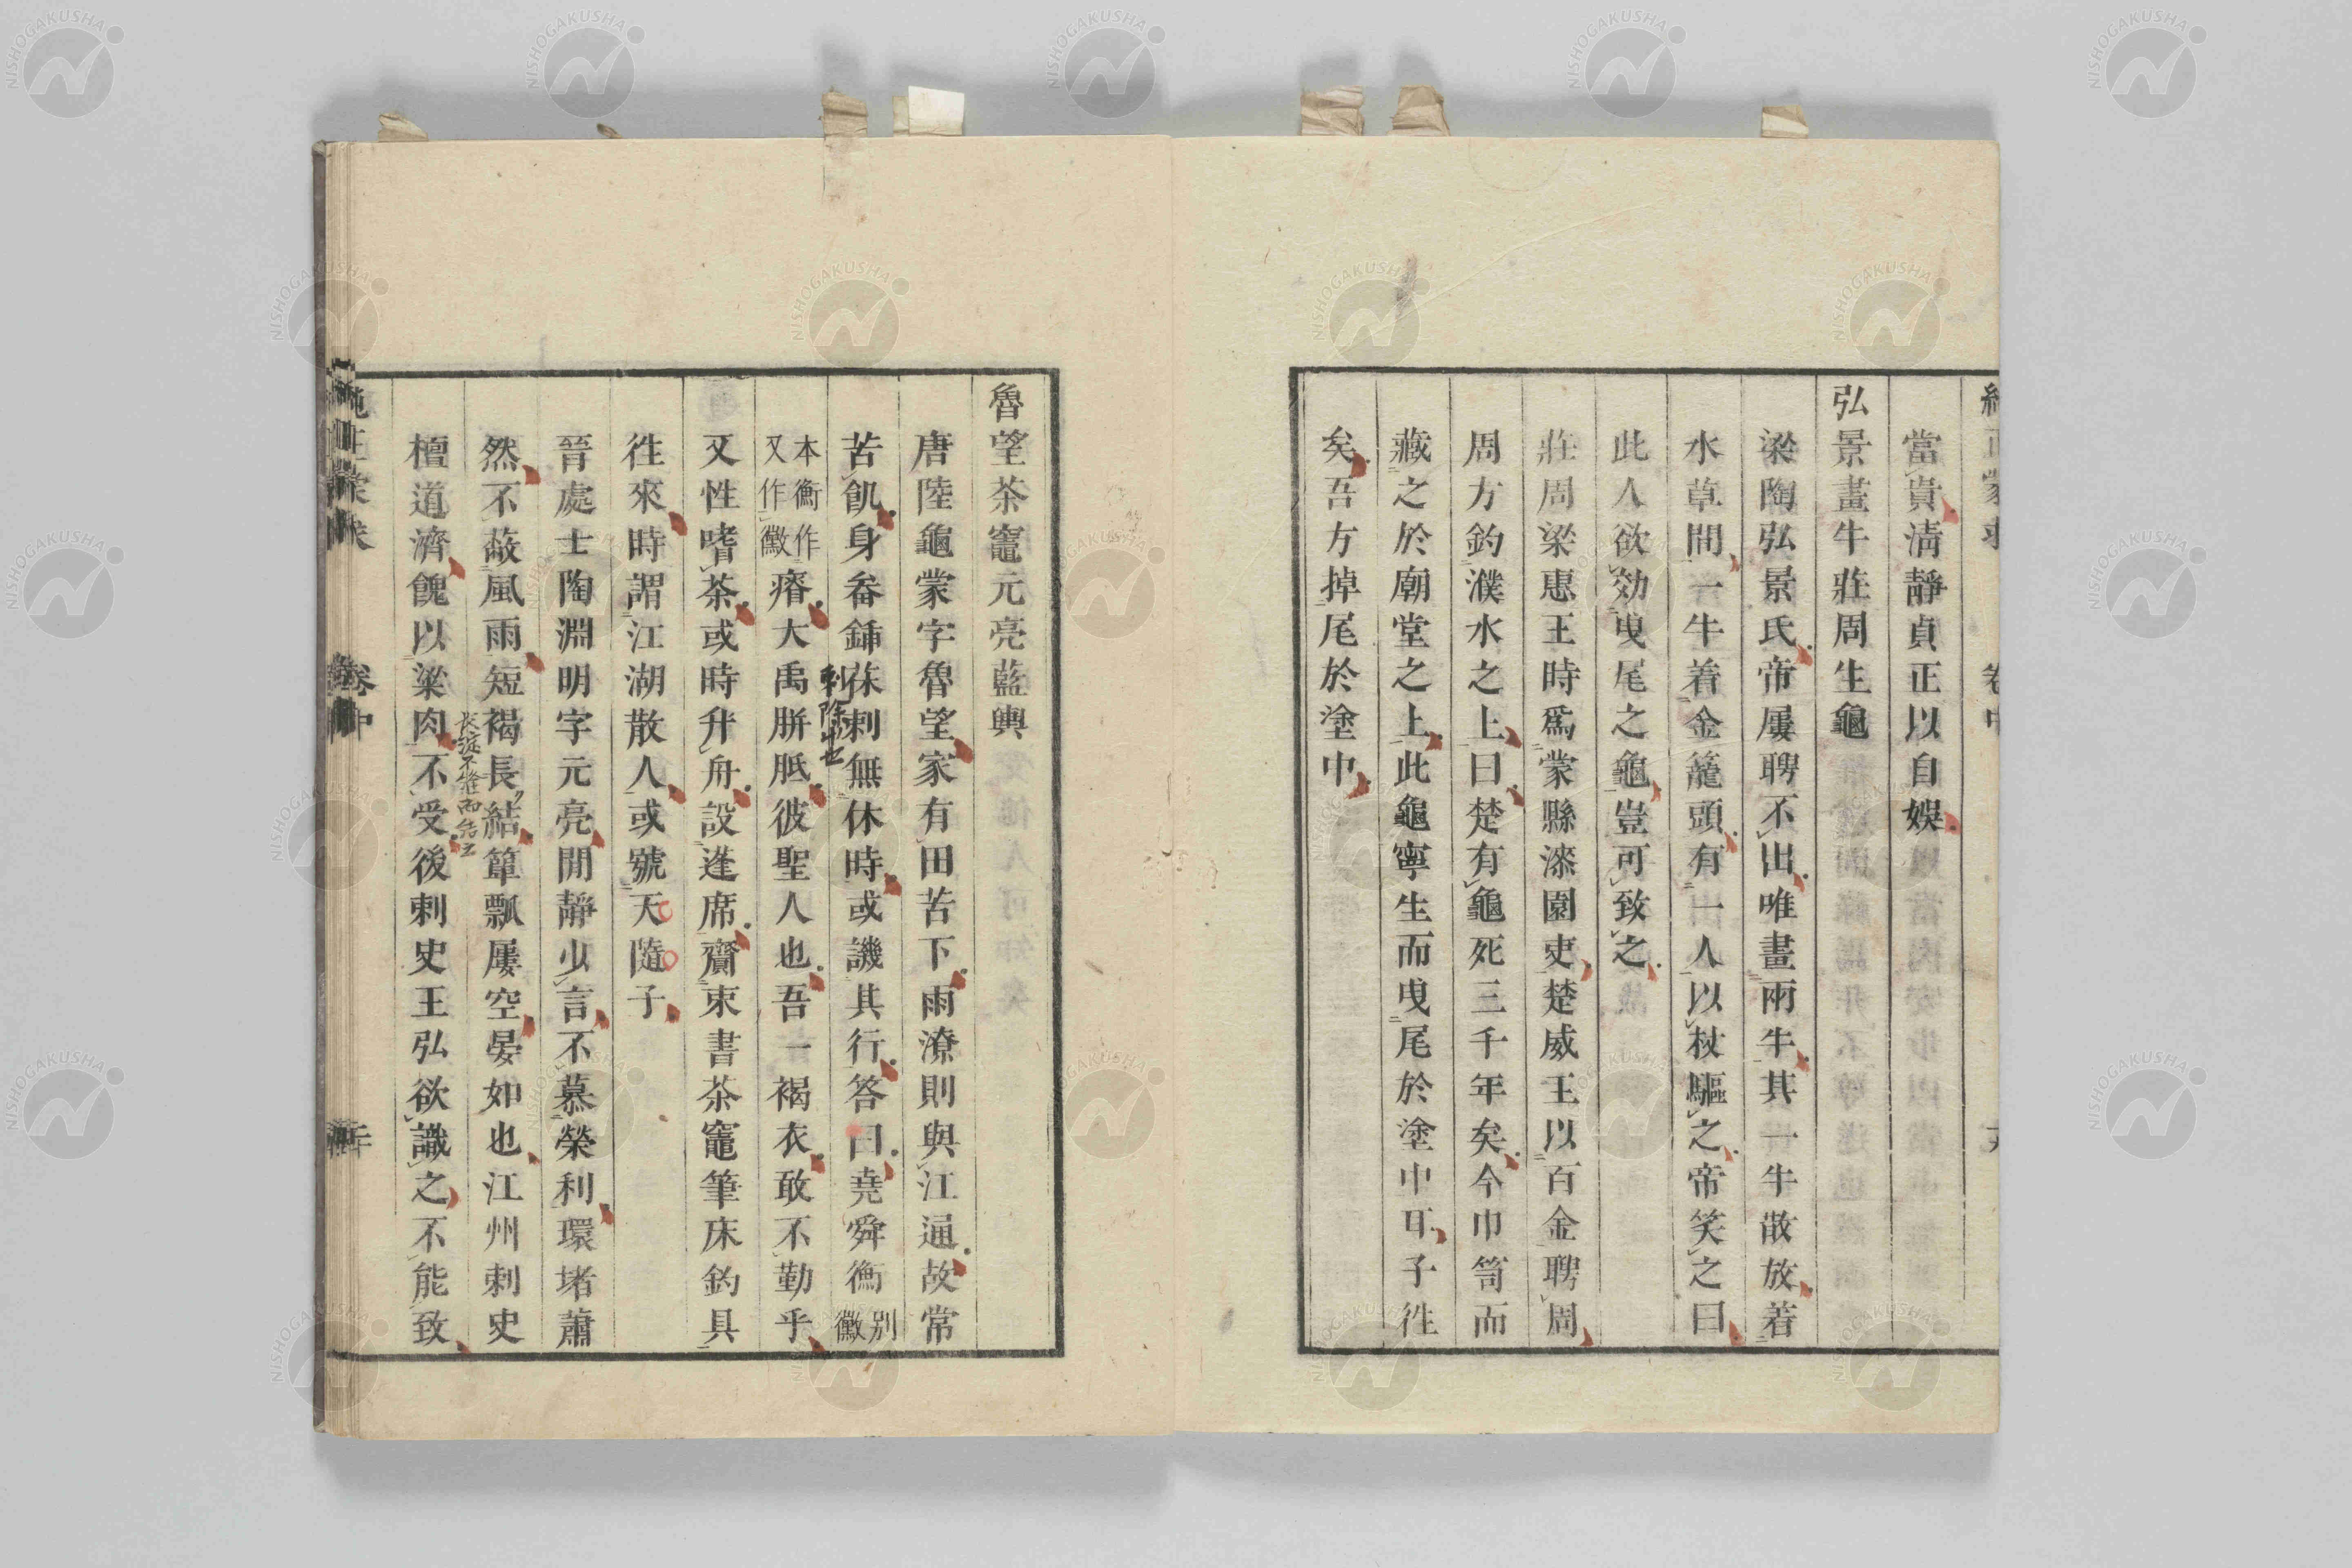 當貴淸靜貞正以自娛
弘景畫牛莊周生龜
梁陶弘景氏帝屢聘不出唯畫兩牛其一牛散放着
水草間一牛着金籠頭有一人以杖驅之帝笑之曰
此人欲効曳尾之龜豈可致之
莊周梁惠王時爲蒙縣漆園吏楚威王以百金聘周
周方釣濮水之上曰楚有龜死三千年矣今巾笥而
藏之於廟堂之上此龜寧生而曳尾於塗中耳子徃
矣吾方掉尾於塗中
魯望茶竈元亮藍輿
唐陸龜蒙字魯望家有田苦下雨潦則與江通故常
苦飢身畚鍤茠刺無休時或譏其行答曰堯舜衡別黴
本衡作又作黴瘠大禹胼胝彼聖人也吾一褐衣敢不勤乎
又性嗜茶或時升舟設蓬席齎束書茶竈筆床釣具
徃來時謂江湖散人或號天隨子
晉處士陶淵明字元亮閒靜少言不慕榮利環堵蕭
然不蔽風雨短褐長結簞瓢屢空晏如也江州刺史
檀道濟餽以粱肉不受後刺史王弘欲識之不能致
刺除草也
卷中
NISHOGAKUSHA